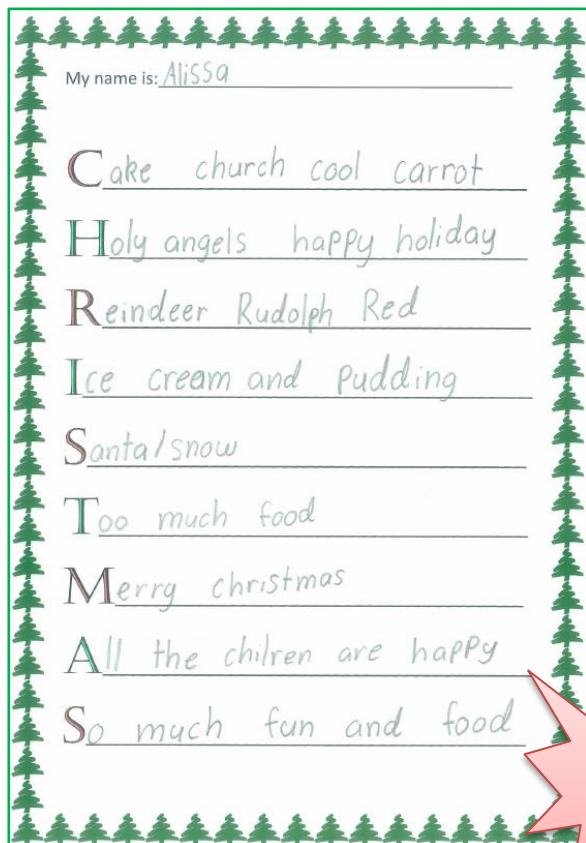 My name is: Alissa
Cake church cool carrot
Holy angels happy holiday
Reindeer Rudolph Red
Ice cream and pudding
Santa/snow
Too much food
Merry christmas
All the chilren are happy
So much fun and food